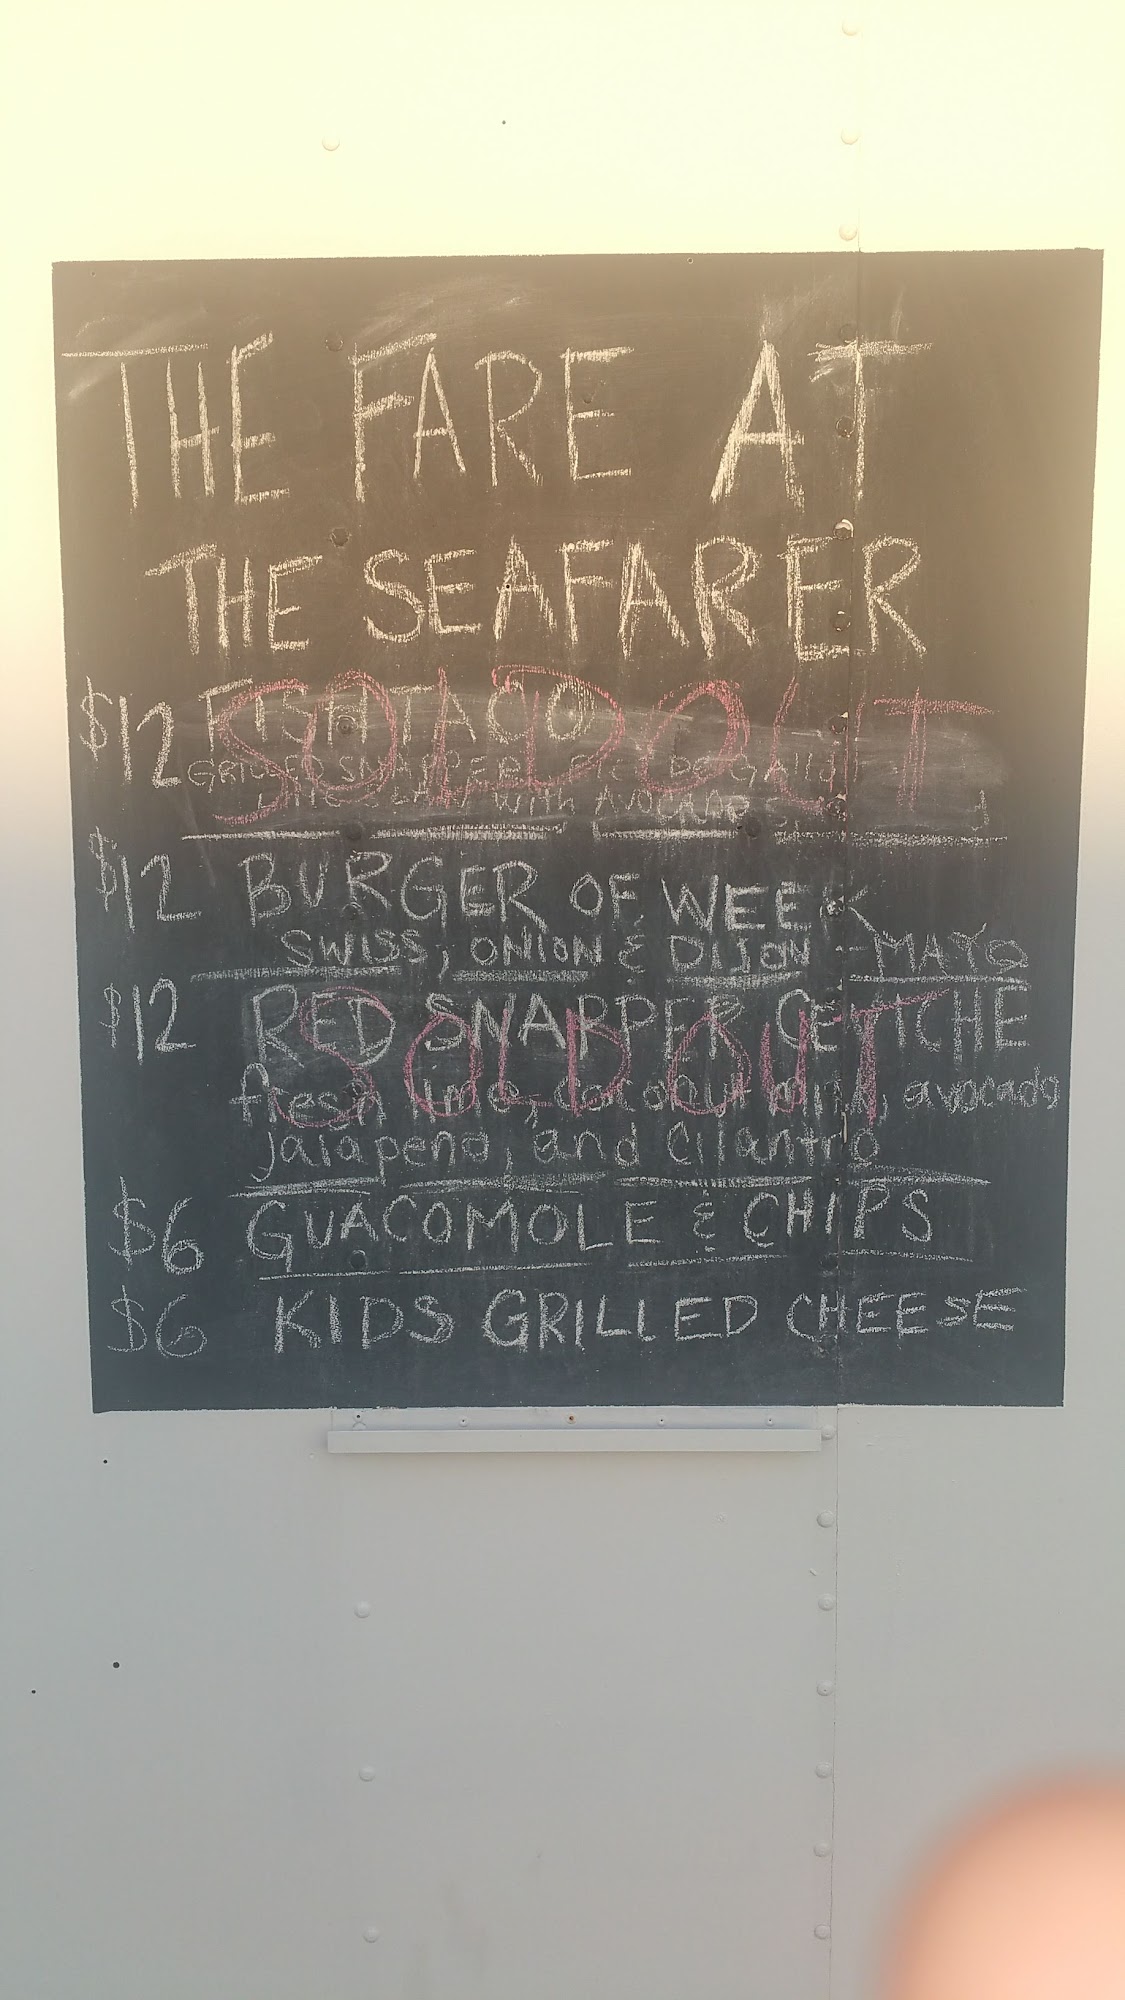 THE FARE AT
THE SEAFARER
$12 FISH TACO
SOLD OUT
GRILLED SNAPPER
with AVOCADO
$12 BURGER OF WEEK
SWISS, ONION & DIJON - MAYO
$12 RED SNAPPER CEVICHE
SOLD OUT
fresh lime, coconut milk, avocado
jalapeno, and cilantro
$6 GUACOMOLE & CHIPS
$6 KIDS GRILLED CHEESE